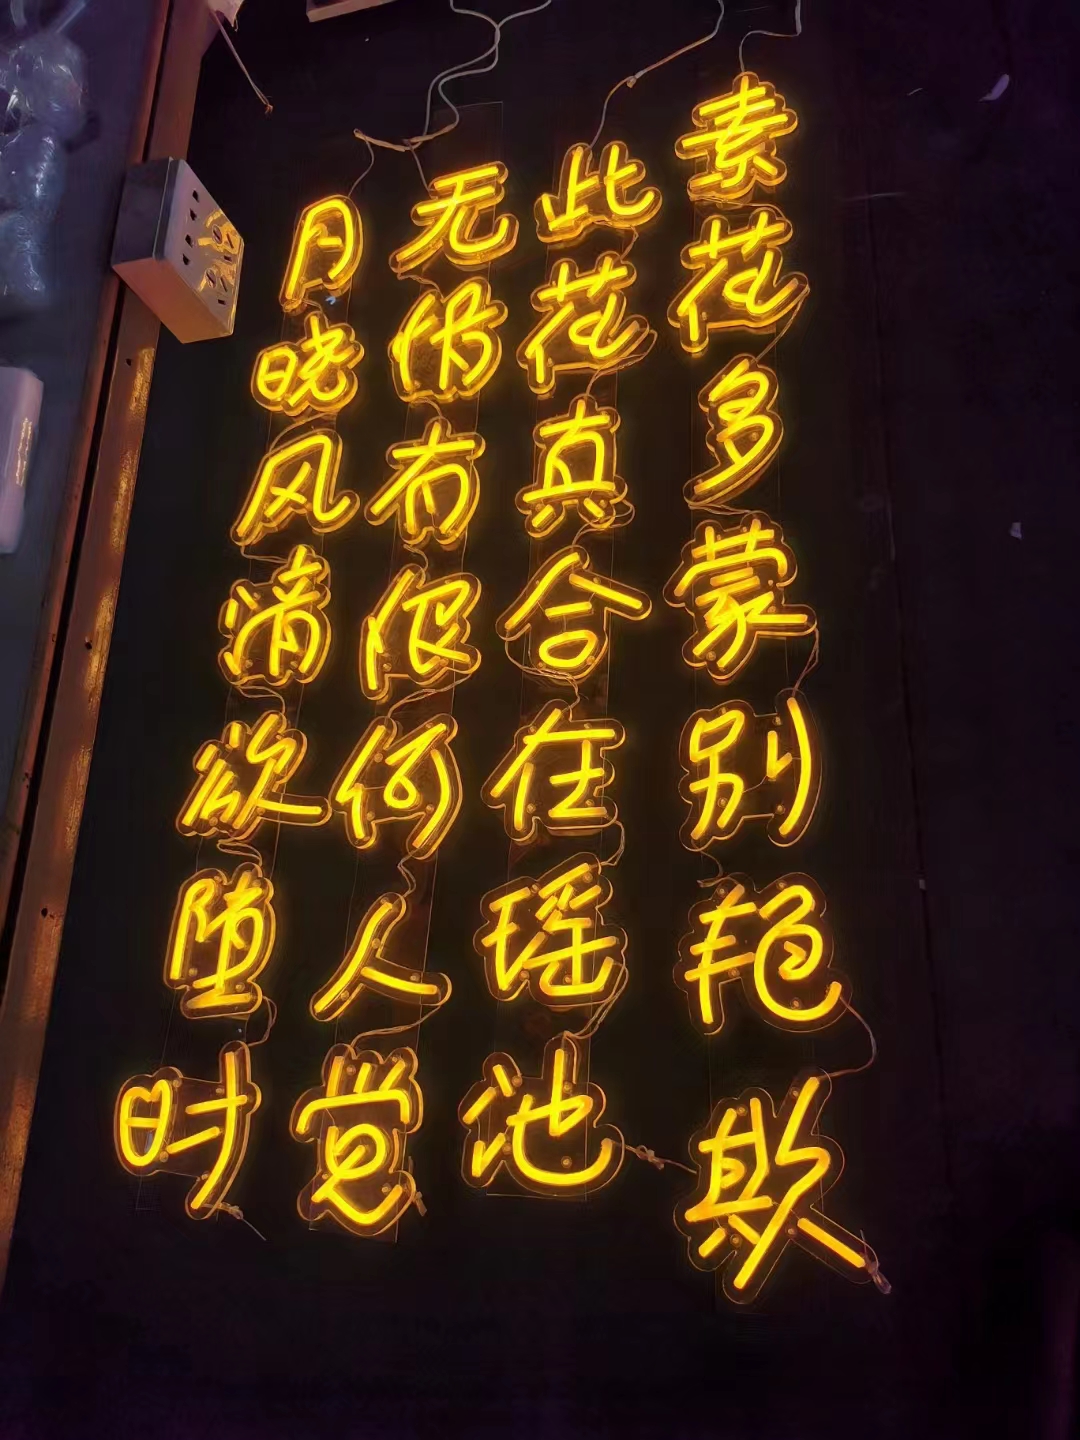 素花多蒙别艳欺
此花真合在瑶池
无情有限何人觉
月晓风清欲堕时